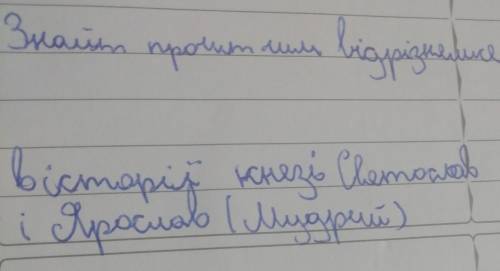 Знайт прочит чим відрізнялися
в історії князі Святослав
і Ярослав (Мудрий)